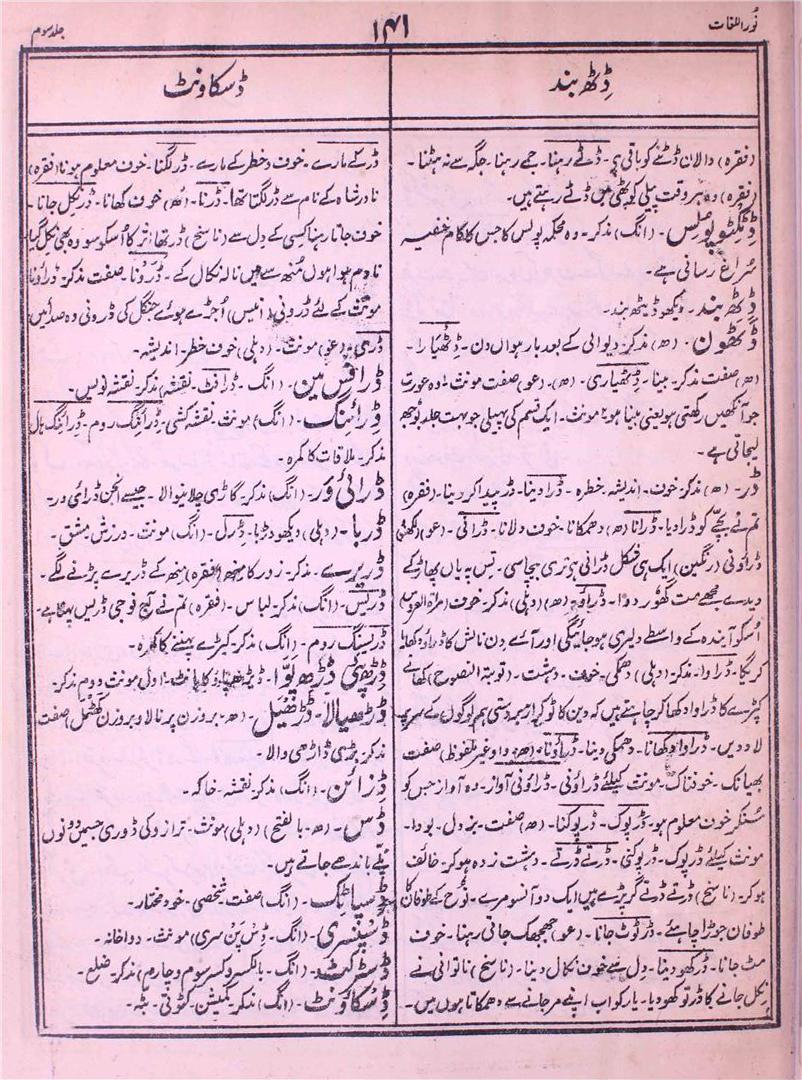 نُور اللغات
۱۴۱
جلد سوم
ڈِٹھ بند
ڈسکاونٹ
(فقرہ) دالان ڈٹنے کو باقی ہے۔ ڈٹے رہنا۔ جمے رہنا۔ جگہ سے نہ ہٹنا۔
(فقرہ) وہ ہر وقت پیلی کوٹھی میں ڈٹے رہتے ہیں۔
ڈٹکٹو پولس۔ (انگ) مذکر۔ وہ محکمہ پولس کا جس کا کام خفیہ
سُراغ رسانی ہے۔
ڈِٹھ بند۔ دیکھو ڈیٹھ بند۔
ڈٹھون۔ (ھ) مذکر۔ دیوالی کے بعد بارہواں دن۔ ڈٹھیارا۔
(ھ) صفت مذکر۔ بینا۔ ڈٹھیاری۔ (ھ)۔ (عو) صفت مونث۔ وہ عورت
جو آنکھیں رکھتی ہو یعنی بینا ہو۔ مونث۔ ایک قسم کی پہیلی جو بہت جلد بوجھ
لیجاتی ہے۔
ڈر۔ (ھ) مذکر۔ خوف۔ اندیشہ۔ خطرہ۔ ڈرا دینا۔ ڈر پیدا کر دینا۔ (فقرہ)
تم نے بچے کو ڈرا دیا۔ ڈرانا (ھ) دھمکانا۔ خوف دلانا۔ ڈرانی۔ (عو) (لکھنؤ)
ڈراونی (رنگین) ایک ہی شکل ڈرانی ہے تری بیچاسی۔ تس پہ یاں پھاڑ کے
دیدے مجھے مت گھور ددا۔ ڈراوا (ھ) (دہلی) مذکر۔ خوف (مراۃ العروس)
اُسکو آیندہ کے واسطے دلیری ہو جائیگی اور آئے دن نالش کا ڈراوا دکھایا
کریگا۔ ڈراوا۔ مذکر۔ (دہلی) دھمکی۔ خوف۔ دہشت۔ (توبۃ النصوح) کھانے
کپڑے کا ڈراوا دکھا کر چاہتے ہیں کہ دین کا ٹوکرا زبردستی ہم لوگوں کے سر پر
لاد دیں۔ ڈراوا دکھانا۔ دھمکی دینا۔ ڈراؤنا۔ (ھ۔ واو غیر ملفوظ) صفت
بھیانک۔ خوفناک۔ مونث کیلئے ڈراونی۔ ڈراونی آواز۔ وہ آواز جس کو
سُنکر خوف معلوم ہو۔ ڈرپوک۔ ڈرپوکنا۔ (ھ) صفت۔ بزدل۔ بودا۔
مونث کیلئے ڈرپوک۔ ڈرپوکنی۔ ڈرتے ڈرتے۔ دہشت زدہ ہو کر۔ خائف
ہو کر۔ (ناسخ) ڈرتے ڈرتے گر پڑے ہیں ایک دو آنسو مرے۔ نوح کے طوفان کا
طوفان جوڑا چاہئے۔ ڈر ٹوٹ جانا۔ (عو) جھجھک جاتی رہنا۔ خوف
مٹ جانا۔ ڈر کھو دینا۔ دِل سے خوف نکال دینا۔ (ناسخ) ناتوانی نے
نکل جانے کا ڈر تو کھو دیا۔ یار کو اب اپنے مر جانے سے دھمکاتا ہوں میں۔
ڈر کے مارے۔ خوف و خطر کے مارے۔ ڈر لگنا۔ خوف معلوم ہونا (فقرہ)
نادر شاہ کے نام سے ڈر لگتا تھا۔ ڈرنا۔ (ھ) خوف کھانا۔ ڈر نکل جانا۔
خوف جاتا رہنا کسی کے دِل سے (ناسخ) ڈر تھا اثر کا اُسکو سو وہ بھی نکل گیا
نادم ہوا ہوں مُنھ سے میں نالہ نکال کے۔ ڈرونا۔ صفت مذکر۔ ڈراونا
مونث کے لئے ڈرونی (انیس) اُجڑے ہوئے جنگل کی ڈرونی وہ صدائیں
ڈری۔ (عو) مونث۔ (دہلی) خوف۔ خطر۔ اندیشہ۔
ڈرافس مین۔ (انگ۔ ڈرافٹ۔ نقشہ) مذکر۔ نقشہ نویس۔
ڈرائنگ۔ (انگ) مونث۔ نقشہ کشی۔ ڈرائنگ روم۔ ڈرائنگ ہال
مذکر۔ ملاقات کا کمرہ۔
ڈرائی ور۔ (انگ) مذکر۔ گاڑی چلانیوالا۔ جیسے انجن ڈرائی ور۔
ڈربا۔ (دہلی) دیکھو دڑبا۔ ڈرل۔ (انگ) مونث۔ ورزش۔ مشق۔
ڈریرے۔ مذکر۔ زور کا مینھ (فقرہ) مینھ کے ڈریرے پڑنے لگے۔
ڈریس۔ (انگ) مذکر۔ لباس۔ (فقرہ) تم نے آج فوجی ڈریس پہنا ہے۔
ڈریسنگ روم۔ (انگ) مذکر۔ کپڑے پہننے کا کمرہ۔
ڈڑھیالا۔ ڈڑھیل۔ (ھ۔ بروزن پرنالا و بروزن کھٹمل) صفت
مذکر۔ بڑی ڈاڑھی والا۔
ڈزائن۔ (انگ) مذکر۔ نقشہ۔ خاکہ۔
ڈس۔ (ھ۔ بالفتح) (دہلی) مونث۔ ترازو کی ڈوری جسمیں دونوں
پلے باندھے جاتے ہیں۔
ڈسپاٹک۔ (انگ) صفت۔ شخصی۔ خود مختار۔
ڈسپنسری۔ (انگ۔ ڈِس پَن سری) مونث۔ دواخانہ۔
ڈسٹرکٹ۔ (انگ۔ بالکسر و کسر سوم و چہارم) مذکر۔ ضلع۔
ڈسکاونٹ۔ (انگ) مذکر۔ کمیشن۔ کٹوتی۔ بٹہ۔